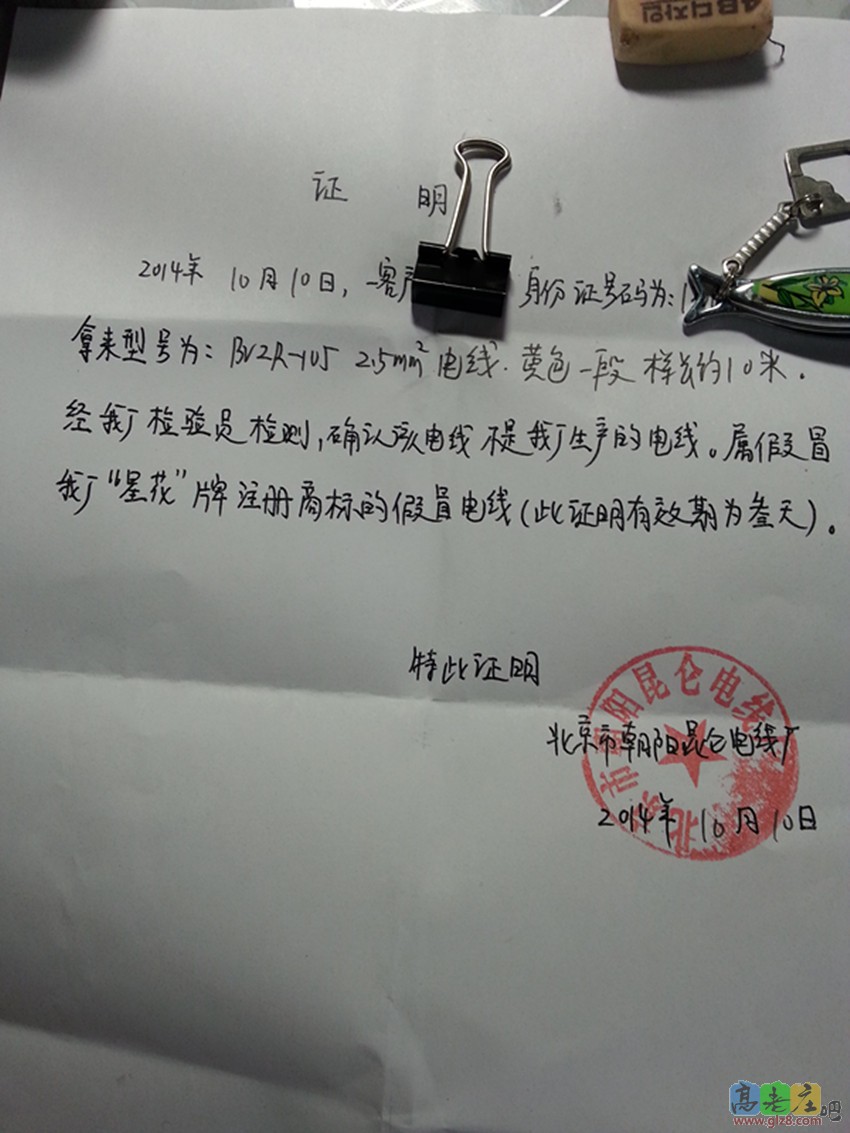 4B 디자인
证 明
2014年 10月10日，一客户 身份证号码为：1
拿来型号为：BVZR-105 2.5mm² 电线.黄色一段 样长约10米.
经我厂检验员检测,确认该电线不是我厂生产的电线。属假冒
我厂“星花”牌注册商标的假冒电线(此证明有效期为叁天)。
特此证明
北京市朝阳昆仑电线
北京市朝阳昆仑电线厂
2014年 10月10日
高老庄吧
www.glz8.com